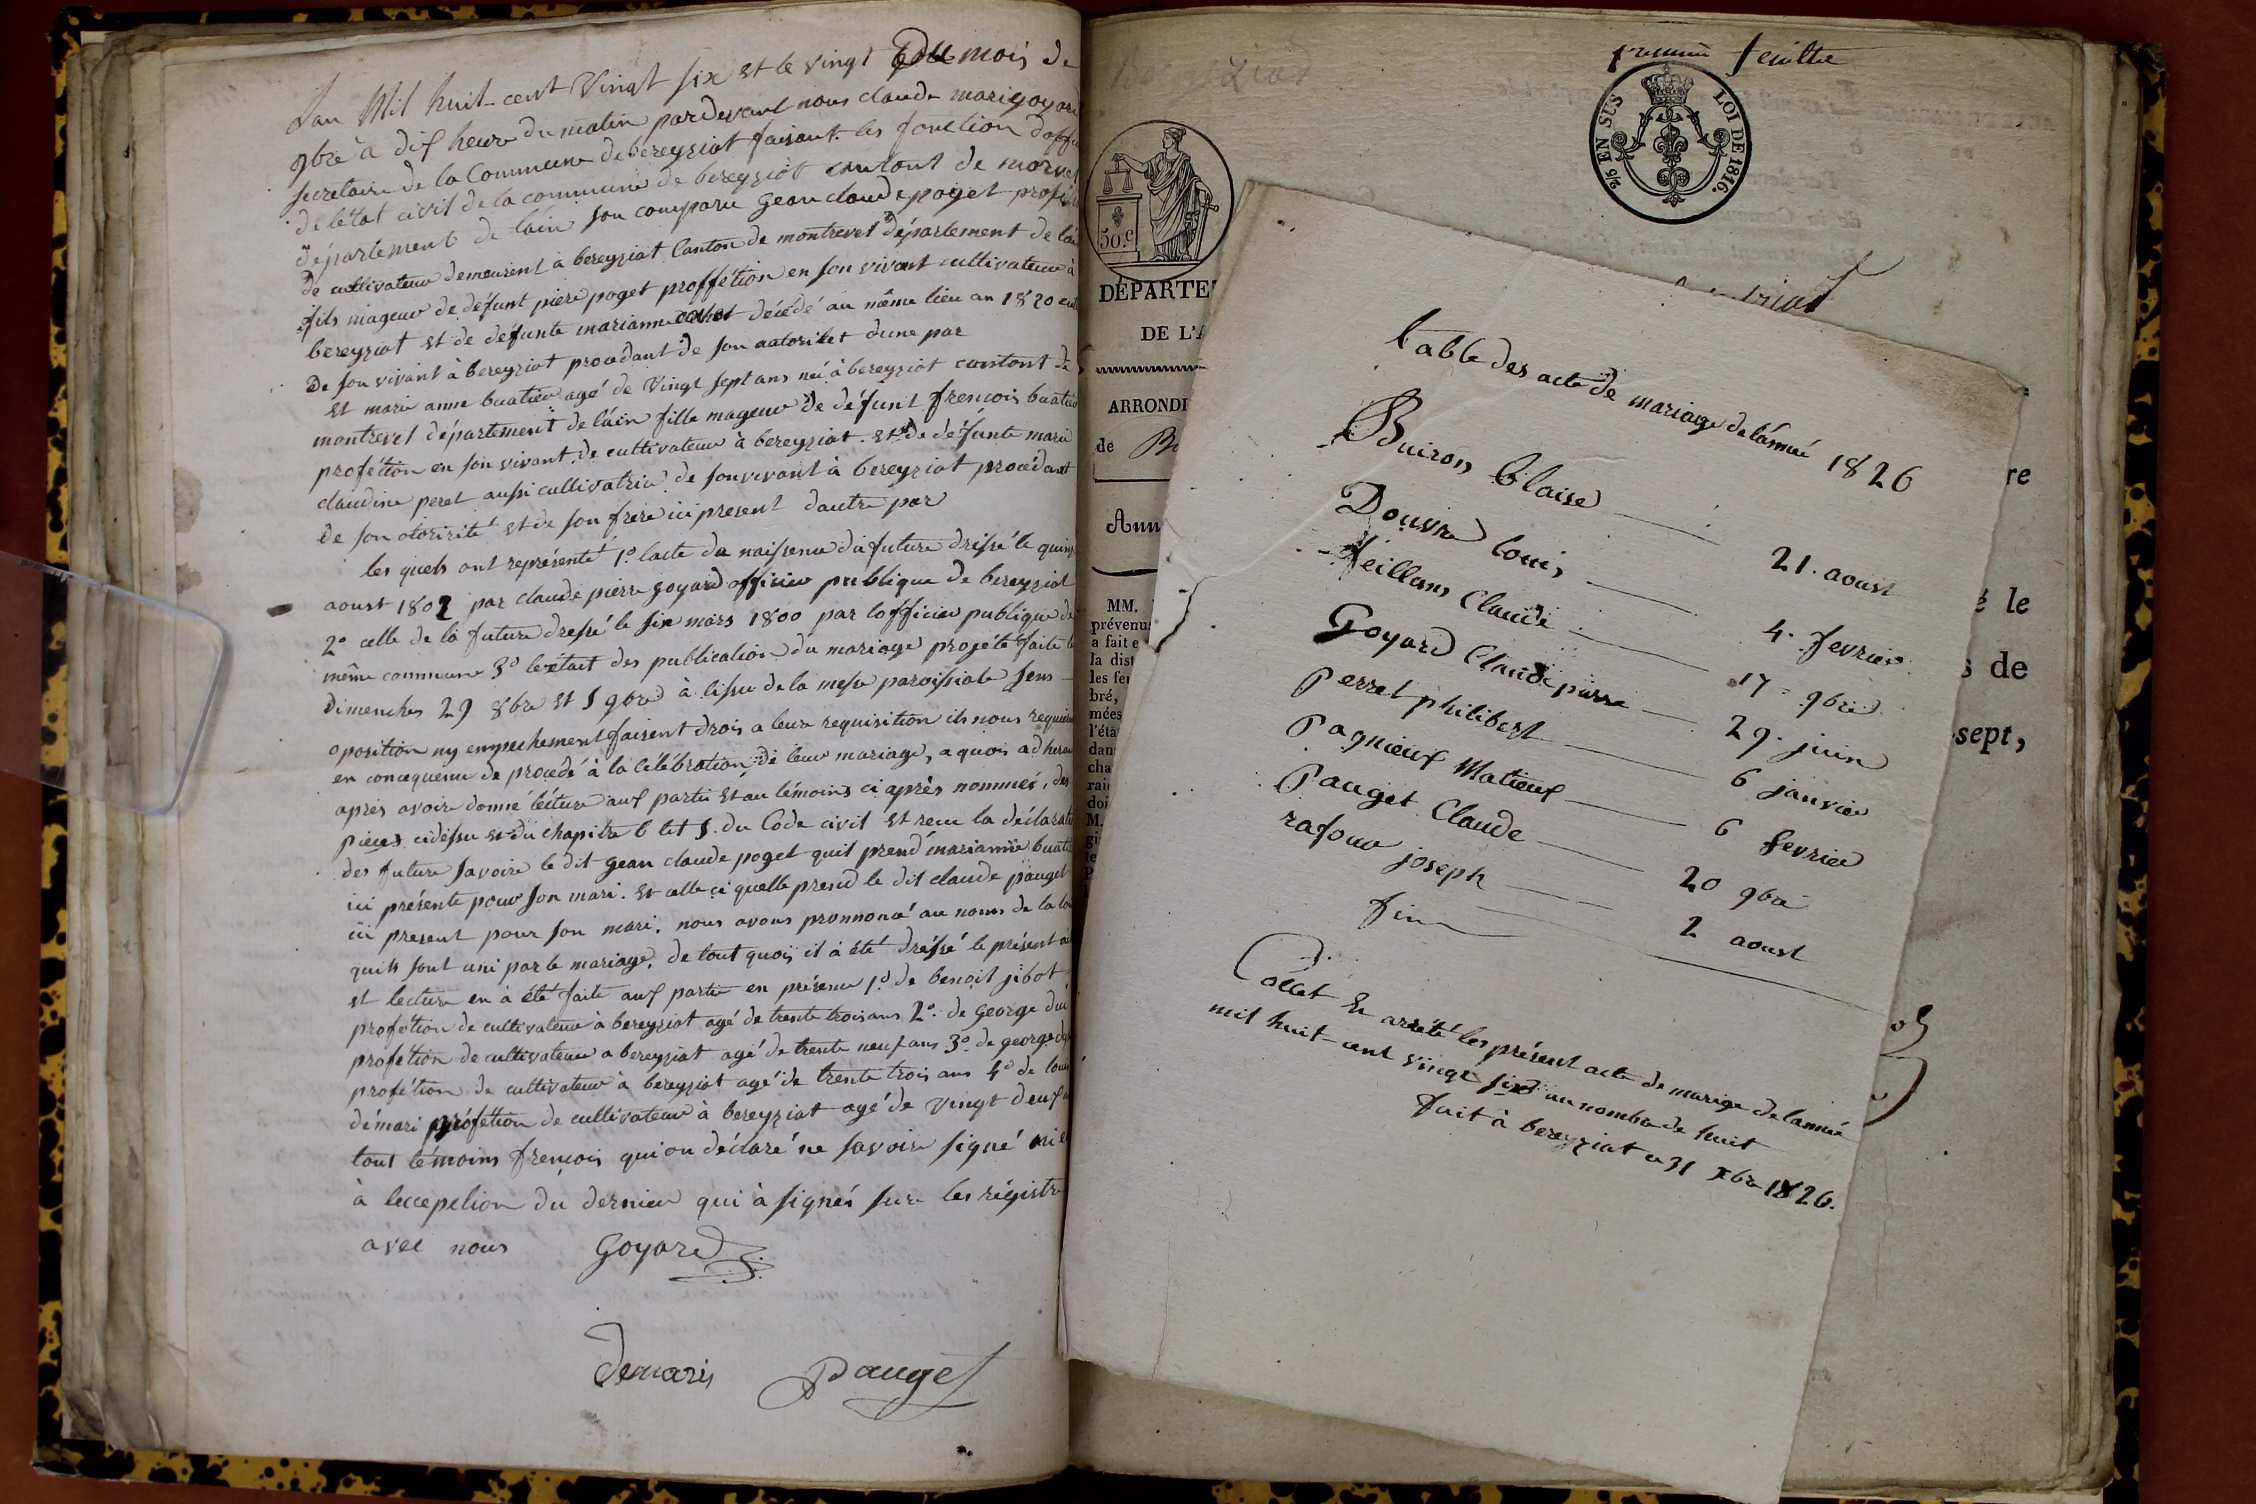 Lan Mil huit cent Vingt six et le vingt du mois de
9bre à dix heure du matin pardevant nous claude mari goyard
secretaire de la Commune de bereyziat faisant les fonction doffi
de letat civil de la commune de bereyziat cantont de
département de lain son comparu gean claude poget
de cultivateur demeurent à bereyziat Canton de montrevel département de lain
fils mageur de défunt piere poget proffétion en son vivant cultivateur à
bereyziat et de défunte marianne décédé au même lieu an 1820
de son vivant à bereyziat procédant de son autorilet dune par
et marie anne buatier agé de vingt sept ans né à bereyziat cantont de
montrevel département de láin fille mageur de défunt frencois buatier
profétion en son vivant de cultivateur à bereyziat et de défunte marie
claudine peret aussi cultivatrice de son vivant à bereyziat procédant
de son otoricité et de son frere ici present dautre par
les quels ont représenté 1º lacte de naissence du future dressé le quinz
aoust 1802 par claude pierre goyard officier publique de bereyziat
2º celle de la future dressé le six mars 1800 par lofficier publique de
même commune 3º lextait des publication du mariage projété faite le
dimenches 29 8bre et 5 9bre à lissue de la messe paroissiale sens
oposition ny empechement faisent drois a leur requisition ils nous requi
en concequence de procedé à la célébration de leur mariage, a quois adhera
après avoire donné lécture aux partie et au témoins ci après nommés, des
pieces cidessu et du chapitre 6 tit 5 du Code civil et recu la déclarati
des future savoire le dit gean claude poget quil prend marianne buati
ici présente pour son mari. et celle ci quelle prend le dit claude pauget
ici present pour son mari. nous avons pronnoncé au nom de la loi
quils sont uni par le mariage. de tout quois il à été dréssé le présent a
et lecture en à été faite aux partie en présence 1º de benoit jibot
profétion de cultivateur à bereyziat agé de trente trois ans 2º de george
profétion de cultivateur a bereyziat agé de trente neuf ans 3º de george
profétion de cultivateur à bereyziat agé de trente trois ans 4º de loui
démari profétion de cultivateur à bereyziat agé de vingt deux
tout témoins frencois qui on déclaré ne savoire signé
à lecception du dernier qui à signés sur les régistre
avec nous Goyard
demaris Pauget
premier feuillet
2/5 EN SUS LOI DE 1816.
50.c
DÉPARTE
DE L'A
ARRONDI
de B
Ann
MM.
prévenu
a fait e
la dist
les feu
bré,
mées
l'éta
dan
cha
rai
doi
M.
re
é le
s de
sept,
table des acte de mariage de lánnée 1826
Buiron blaise 21. aoust
Douvre louis 4. fevrier
feillens Claude 17 9bre
Goyard Claude pierre 29. juin
perret philibert 6 janvier
pagnieux Matieux 6 fevrier
pauget Claude 20 9bre
rafour joseph 2 aoust
fin
Collet et arrété les présent acte de marige de lannée
mil huit cent vingt six au nombre de huit
fait à bereyziat ce 31 xbre 1826.